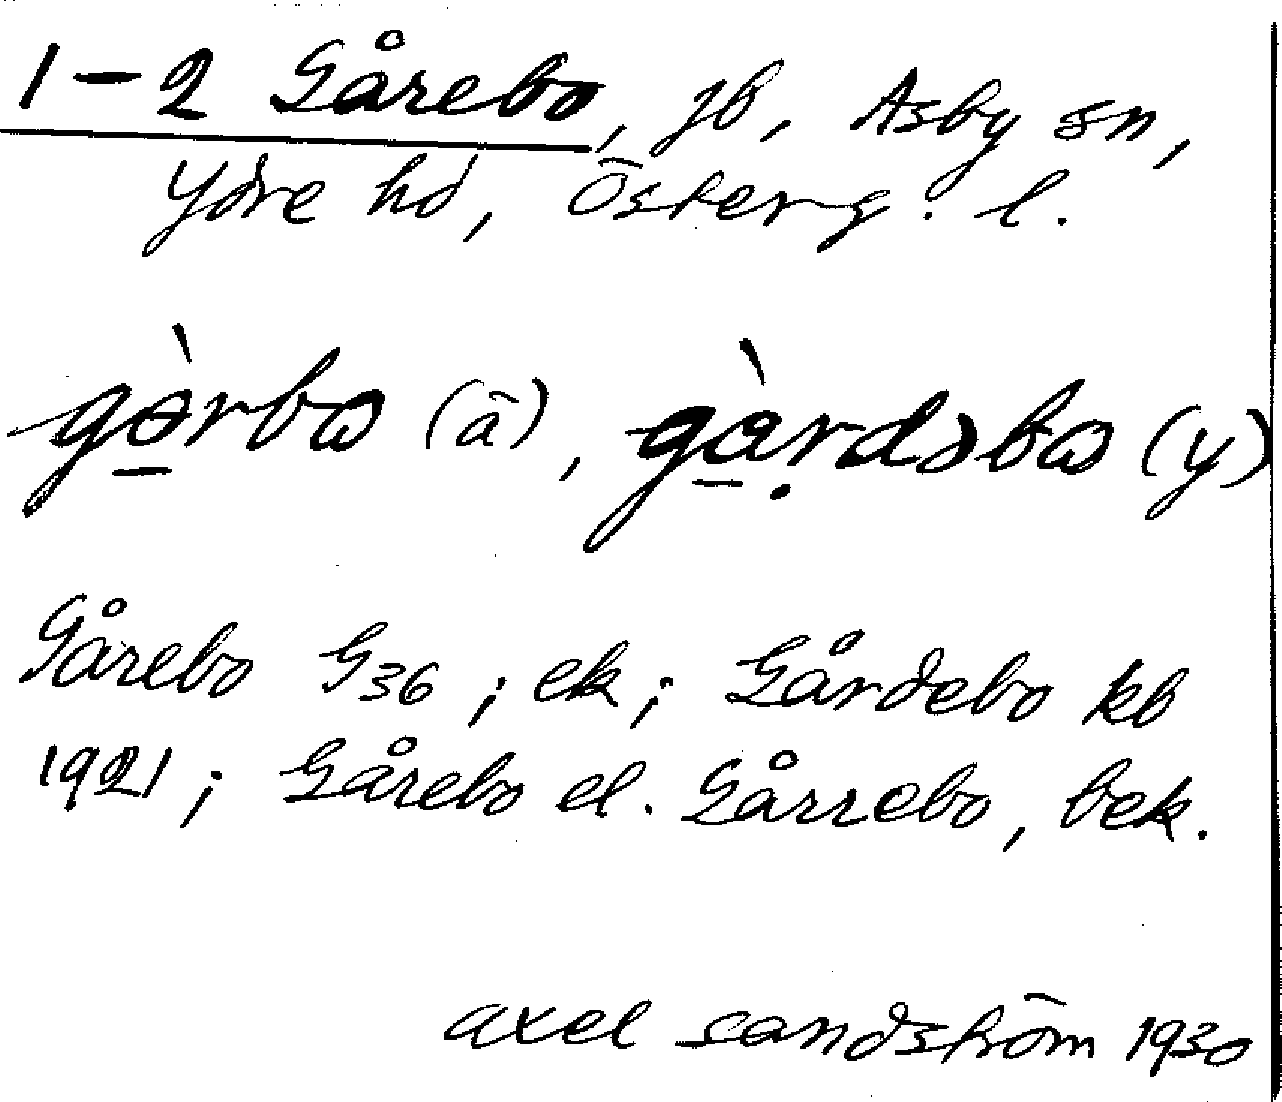 1-2 Gårebo, jb, Asby sn,
Ydre hd, Österg. l.
gàrbω (ä), gàrdsbω (y)
Gårebo G36; ek; Gårdebo kb
1921; Gårebo el. Gårrebo, bek.
axel sandström 1930